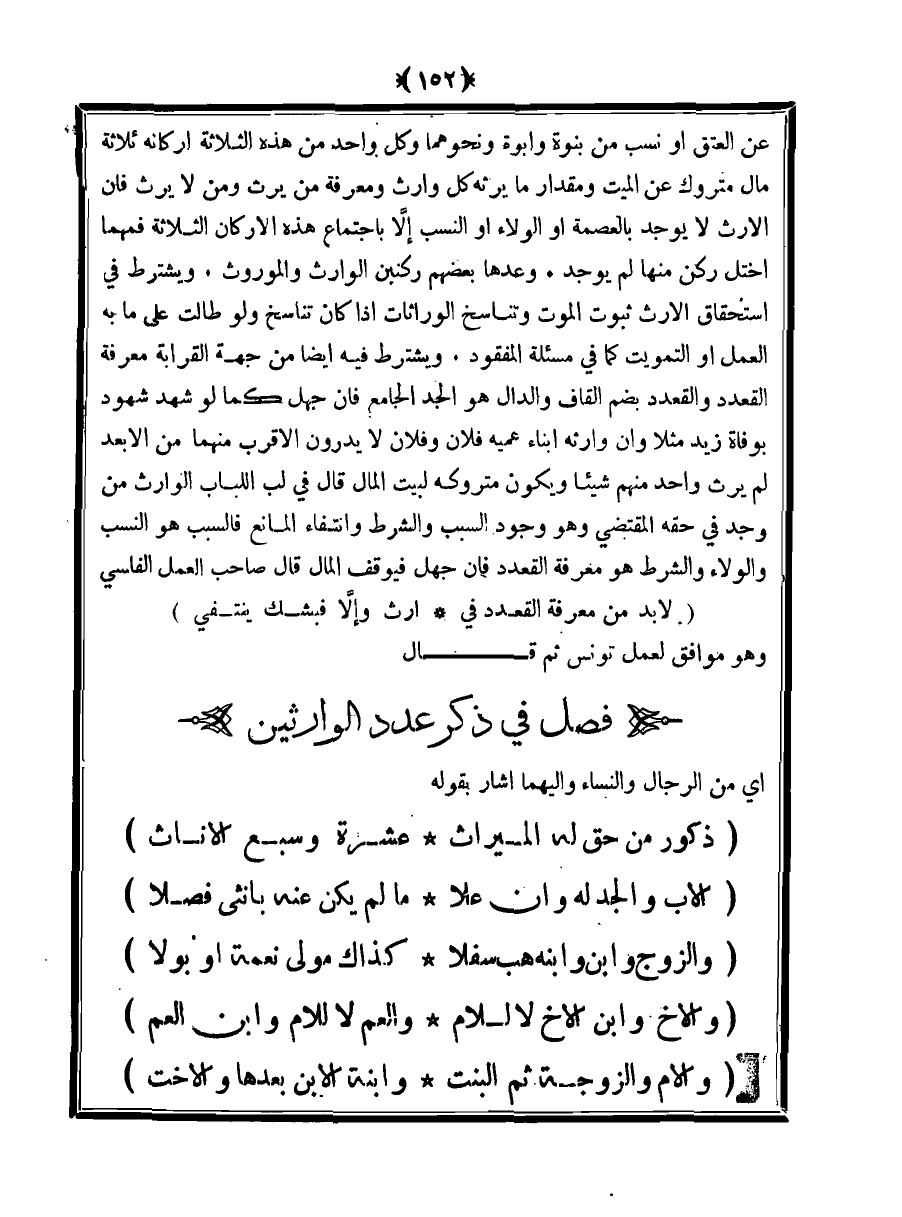 ﴿١٥٢﴾
عن العتق او نسب من بنوة وابوة ونحوهما وكل واحد من هذه الثلاثة اركانه ثلاثة
مال متروك عن الميت ومقدار ما يرثه كل وارث ومعرفة من يرث ومن لا يرث فان
الارث لا يوجد بالعصمة او الولاء او النسب إلَّا باجتماع هذه الاركان الثلاثة فمهما
اختل ركن منها لم يوجد . وعدها بعضهم ركنين الوارث والموروث . ويشترط في
استحقاق الارث ثبوت الموت وتناسخ الوراثات اذا كان تناسخ ولو طالت على ما به
العمل او التمويت كما في مسئلة المفقود . ويشترط فيه ايضا من جهة القرابة معرفة
القعدد والقعدد بضم القاف والدال هو الجد الجامع فان جهل كما لو شهد شهود
بوفاة زيد مثلا وان وارثه ابناء عميه فلان وفلان لا يدرون الاقرب منهما من الابعد
لم يرث واحد منهم شيئا ويكون متروكه لبيت المال قال في لب اللباب الوارث من
وجد في حقه المقتضي وهو وجود السبب والشرط وانتفاء المانع فالسبب هو النسب
والولاء والشرط هو معرفة القعدد فان جهل فيوقف المال قال صاحب العمل الفاسي
( لابد من معرفة القعدد في * ارث وإلَّا فبشك ينتفي )
وهو موافق لعمل تونس ثم قال
فصل في ذكر عدد الوارثين
اي من الرجال والنساء واليهما اشار بقوله
( ذكور من حق له الميراث * عشرة وسبع الاناث )
( الاب والجد له وان علا * ما لم يكن عنه بانثى فصلا )
( والزوج وابن وابنه هب سفلا * كذاك مولى نعمة او بولا )
( والاخ وابن الاخ لا للام * والعم لا للام وابن العم )
( والام والزوجة ثم البنت * وابنة الابن بعدها والاخت )